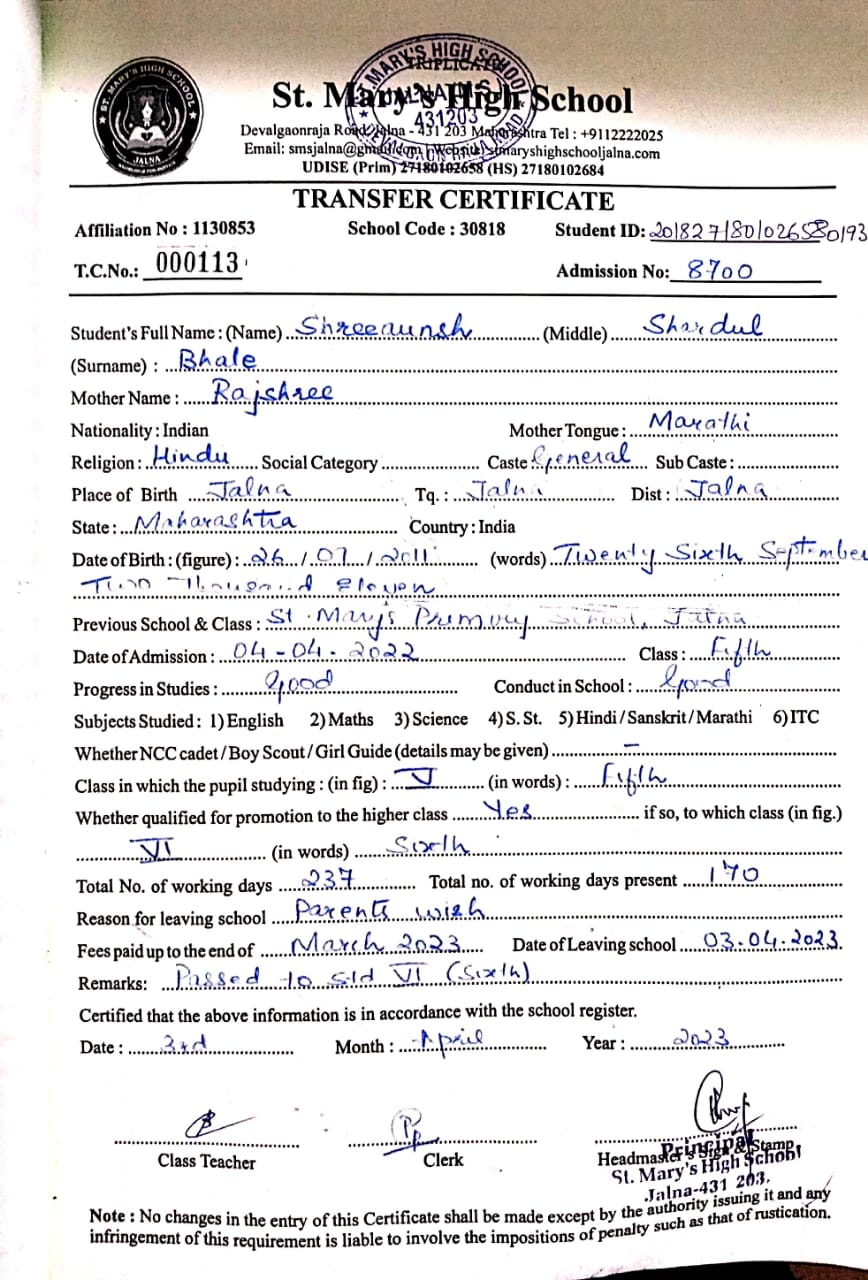 ST. MARY'S HIGH SCHOOL
JALNA
TRIPLICATE
431203
St. Mary's High School
Devalgaonraja Road, Jalna - 431 203 Maharashtra Tel : +9112222025
Email: smsjalna@gmail.com | Website: stmaryshighschooljalna.com
UDISE (Prim) 27180102658 (HS) 27180102684
TRANSFER CERTIFICATE
Affiliation No : 1130853 School Code : 30818 Student ID: 2018271801026580193
T.C.No.: 000113 Admission No: 8700
Student's Full Name : (Name) Shreeaunsh (Middle) Shardul
(Surname) : Bhale
Mother Name : Rajshree
Nationality : Indian Mother Tongue : Marathi
Religion : Hindu Social Category Caste General Sub Caste :
Place of Birth Jalna Tq. : Jalna Dist : Jalna
State : Maharashtra Country : India
Date of Birth : (figure) : 26 / 07 / 2011 (words) Twenty Sixth September
Two Thousand Eleven
Previous School & Class : St. Mary's Primary School, Jalna
Date of Admission : 04-04-2022 Class : Fifth
Progress in Studies : Good Conduct in School : Good
Subjects Studied : 1) English 2) Maths 3) Science 4) S. St. 5) Hindi / Sanskrit / Marathi 6) ITC
Whether NCC cadet / Boy Scout / Girl Guide (details may be given) —
Class in which the pupil studying : (in fig) : V (in words) : Fifth
Whether qualified for promotion to the higher class Yes if so, to which class (in fig.)
VI (in words) Sixth
Total No. of working days 237 Total no. of working days present 170
Reason for leaving school Parents wish
Fees paid up to the end of March 2023 Date of Leaving school 03.04.2023.
Remarks: Passed to std VI (Sixth)
Certified that the above information is in accordance with the school register.
Date : 3rd Month : April Year : 2023
Class Teacher Clerk Headmaster's Sign & Stamp
Principal
St. Mary's High School
Jalna-431 203.
Note : No changes in the entry of this Certificate shall be made except by the authority issuing it and any
infringement of this requirement is liable to involve the impositions of penalty such as that of rustication.